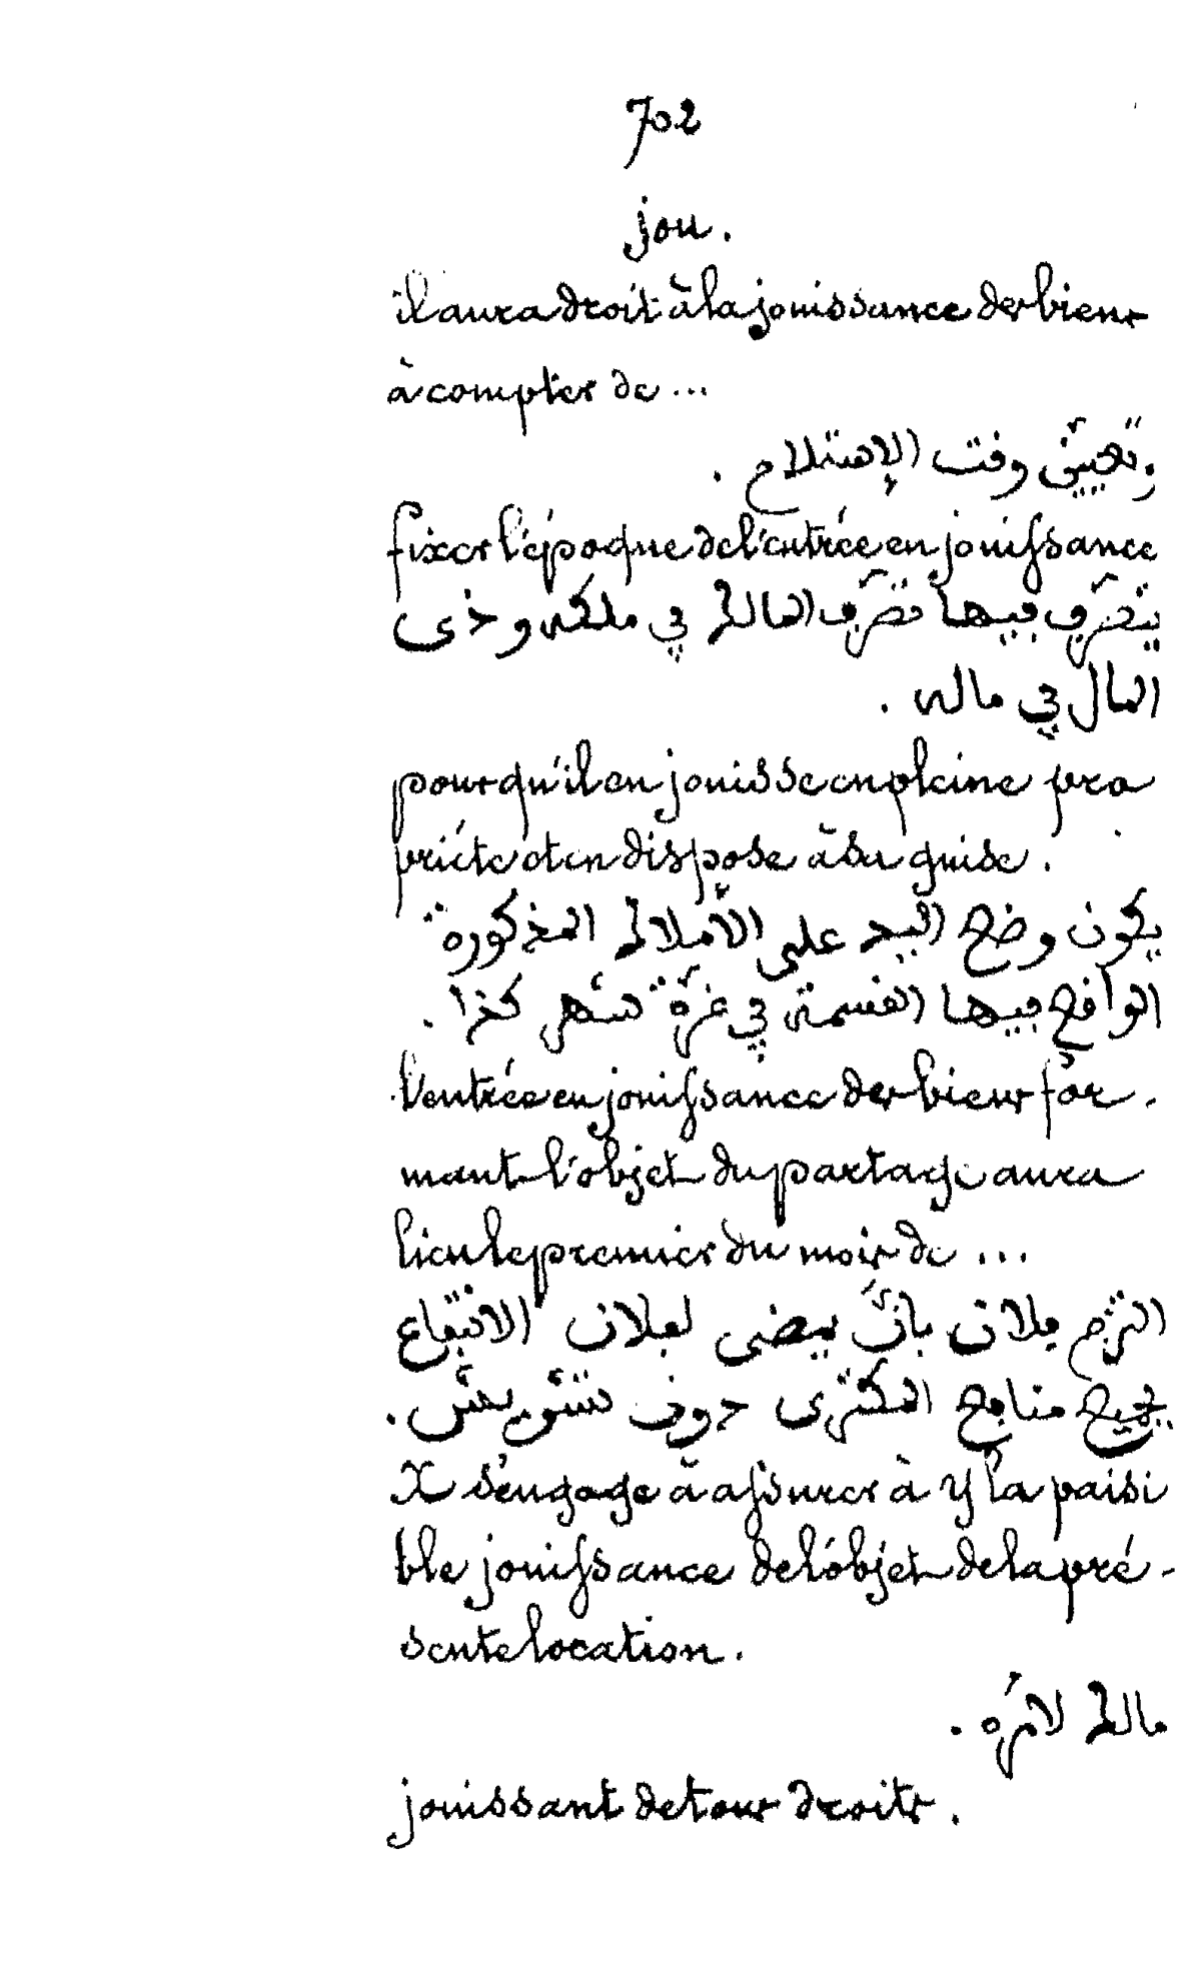 702
jou.
il aura droit à la jouissance des biens
à compter de ...
وتعيين وقت الإستلام .
fixer l'époque de l'entrée en jouissance
يتصرّف فيها تصرّف المالك في ملكه وذى
المال في ماله .
pour qu'il en jouisse en pleine pro
priété et en dispose à sa guise .
يكون وضع اليد على الأملاك المذكورة
الواقع فيها القسمة في غرّة شهر كذا .
l'entrée en jouissance des biens for -
mant l'objet du partage aura
lieu le premier du mois de ...
التزم فلان بأنّ يبضى لفلان الانتفاع
بجميع منافع المكترى دون تشويش .
X s'engage à assurer à Y la paisi
ble jouissance de l'objet de la pré -
sente location .
مالك لامره .
jouissant de tous droits .